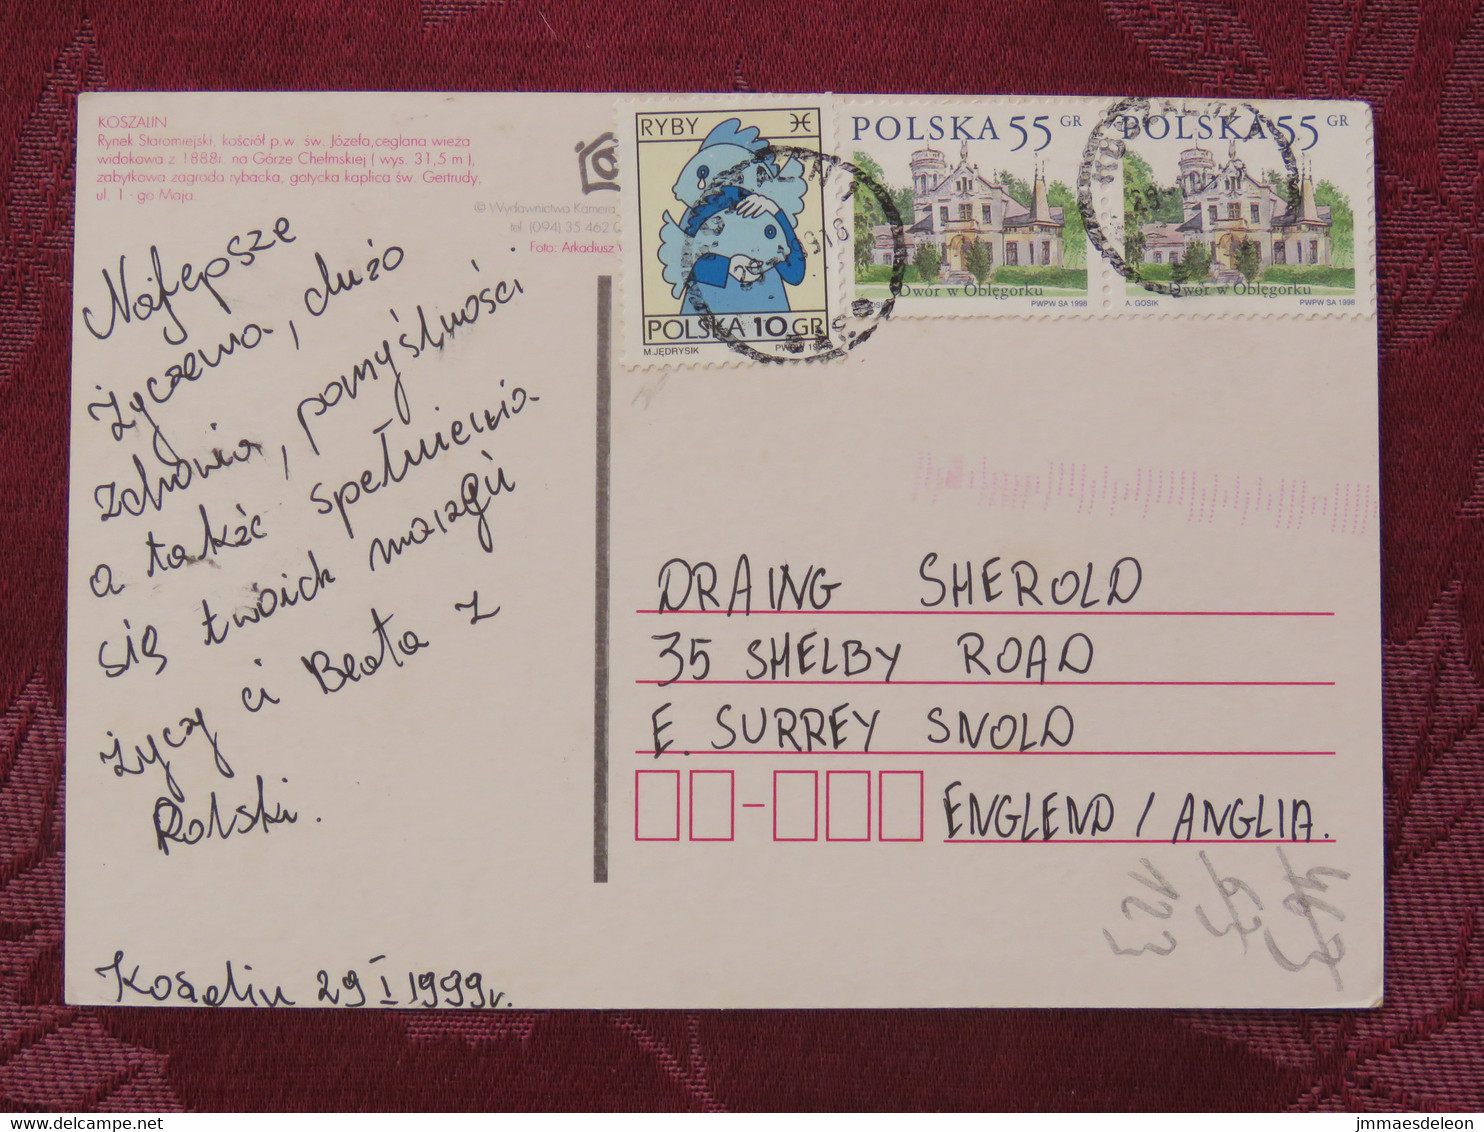 KOSZALIN
Rynek Staromiejski, kościół p.w. św. Józefa, ceglana wieża
widokowa z 1888r. na Górze Chełmskiej ( wys. 31,5 m ),
zabytkowa zagroda rybacka, gotycka kaplica św. Gertrudy,
ul. 1 - go Maja
© Wydawnictwo Kamera
tel. (094) 35 462
Foto: Arkadiusz
RYBY
POLSKA 10 GR
M.JĘDRYSIK PWPW
POLSKA 55 GR
Dwór w Oblęgorku
PWPW SA 1998
POLSKA 55 GR
Dwór w Oblęgorku
A. GOSIK PWPW SA 1998
Najlepsze
życzenia, dużo
zdrowia, pomyślności
a także spełnienia
się twoich marzeń
życzy ci Beata z
Polski.
Koszalin 29 I 1999r.
DRAING SHEROLD
35 SHELBY ROAD
E. SURREY SNOLD
ENGLEND / ANGLIA.
123